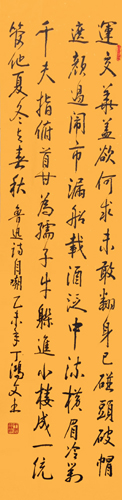 運交華蓋欲何求未敢翻身已碰頭破帽
遮顏過鬧市漏船載酒泛中流橫眉冷對
千夫指俯首甘為孺子牛躲進小樓成一統
管他夏冬与春秋 魯迅詩自嘲 乙未年丁鴻文